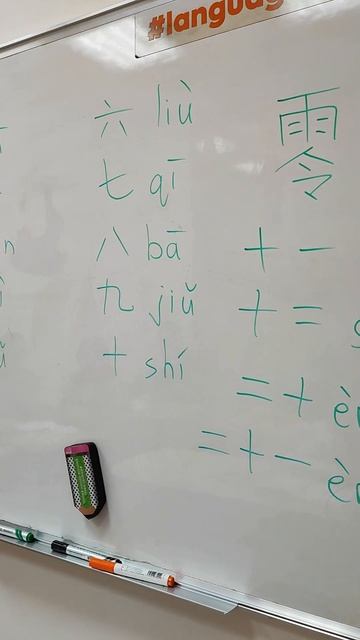 #language
六 liù
七 qī
八 bā
九 jiǔ
十 shí
零
十一
十二
二十 èr
二十一 èr